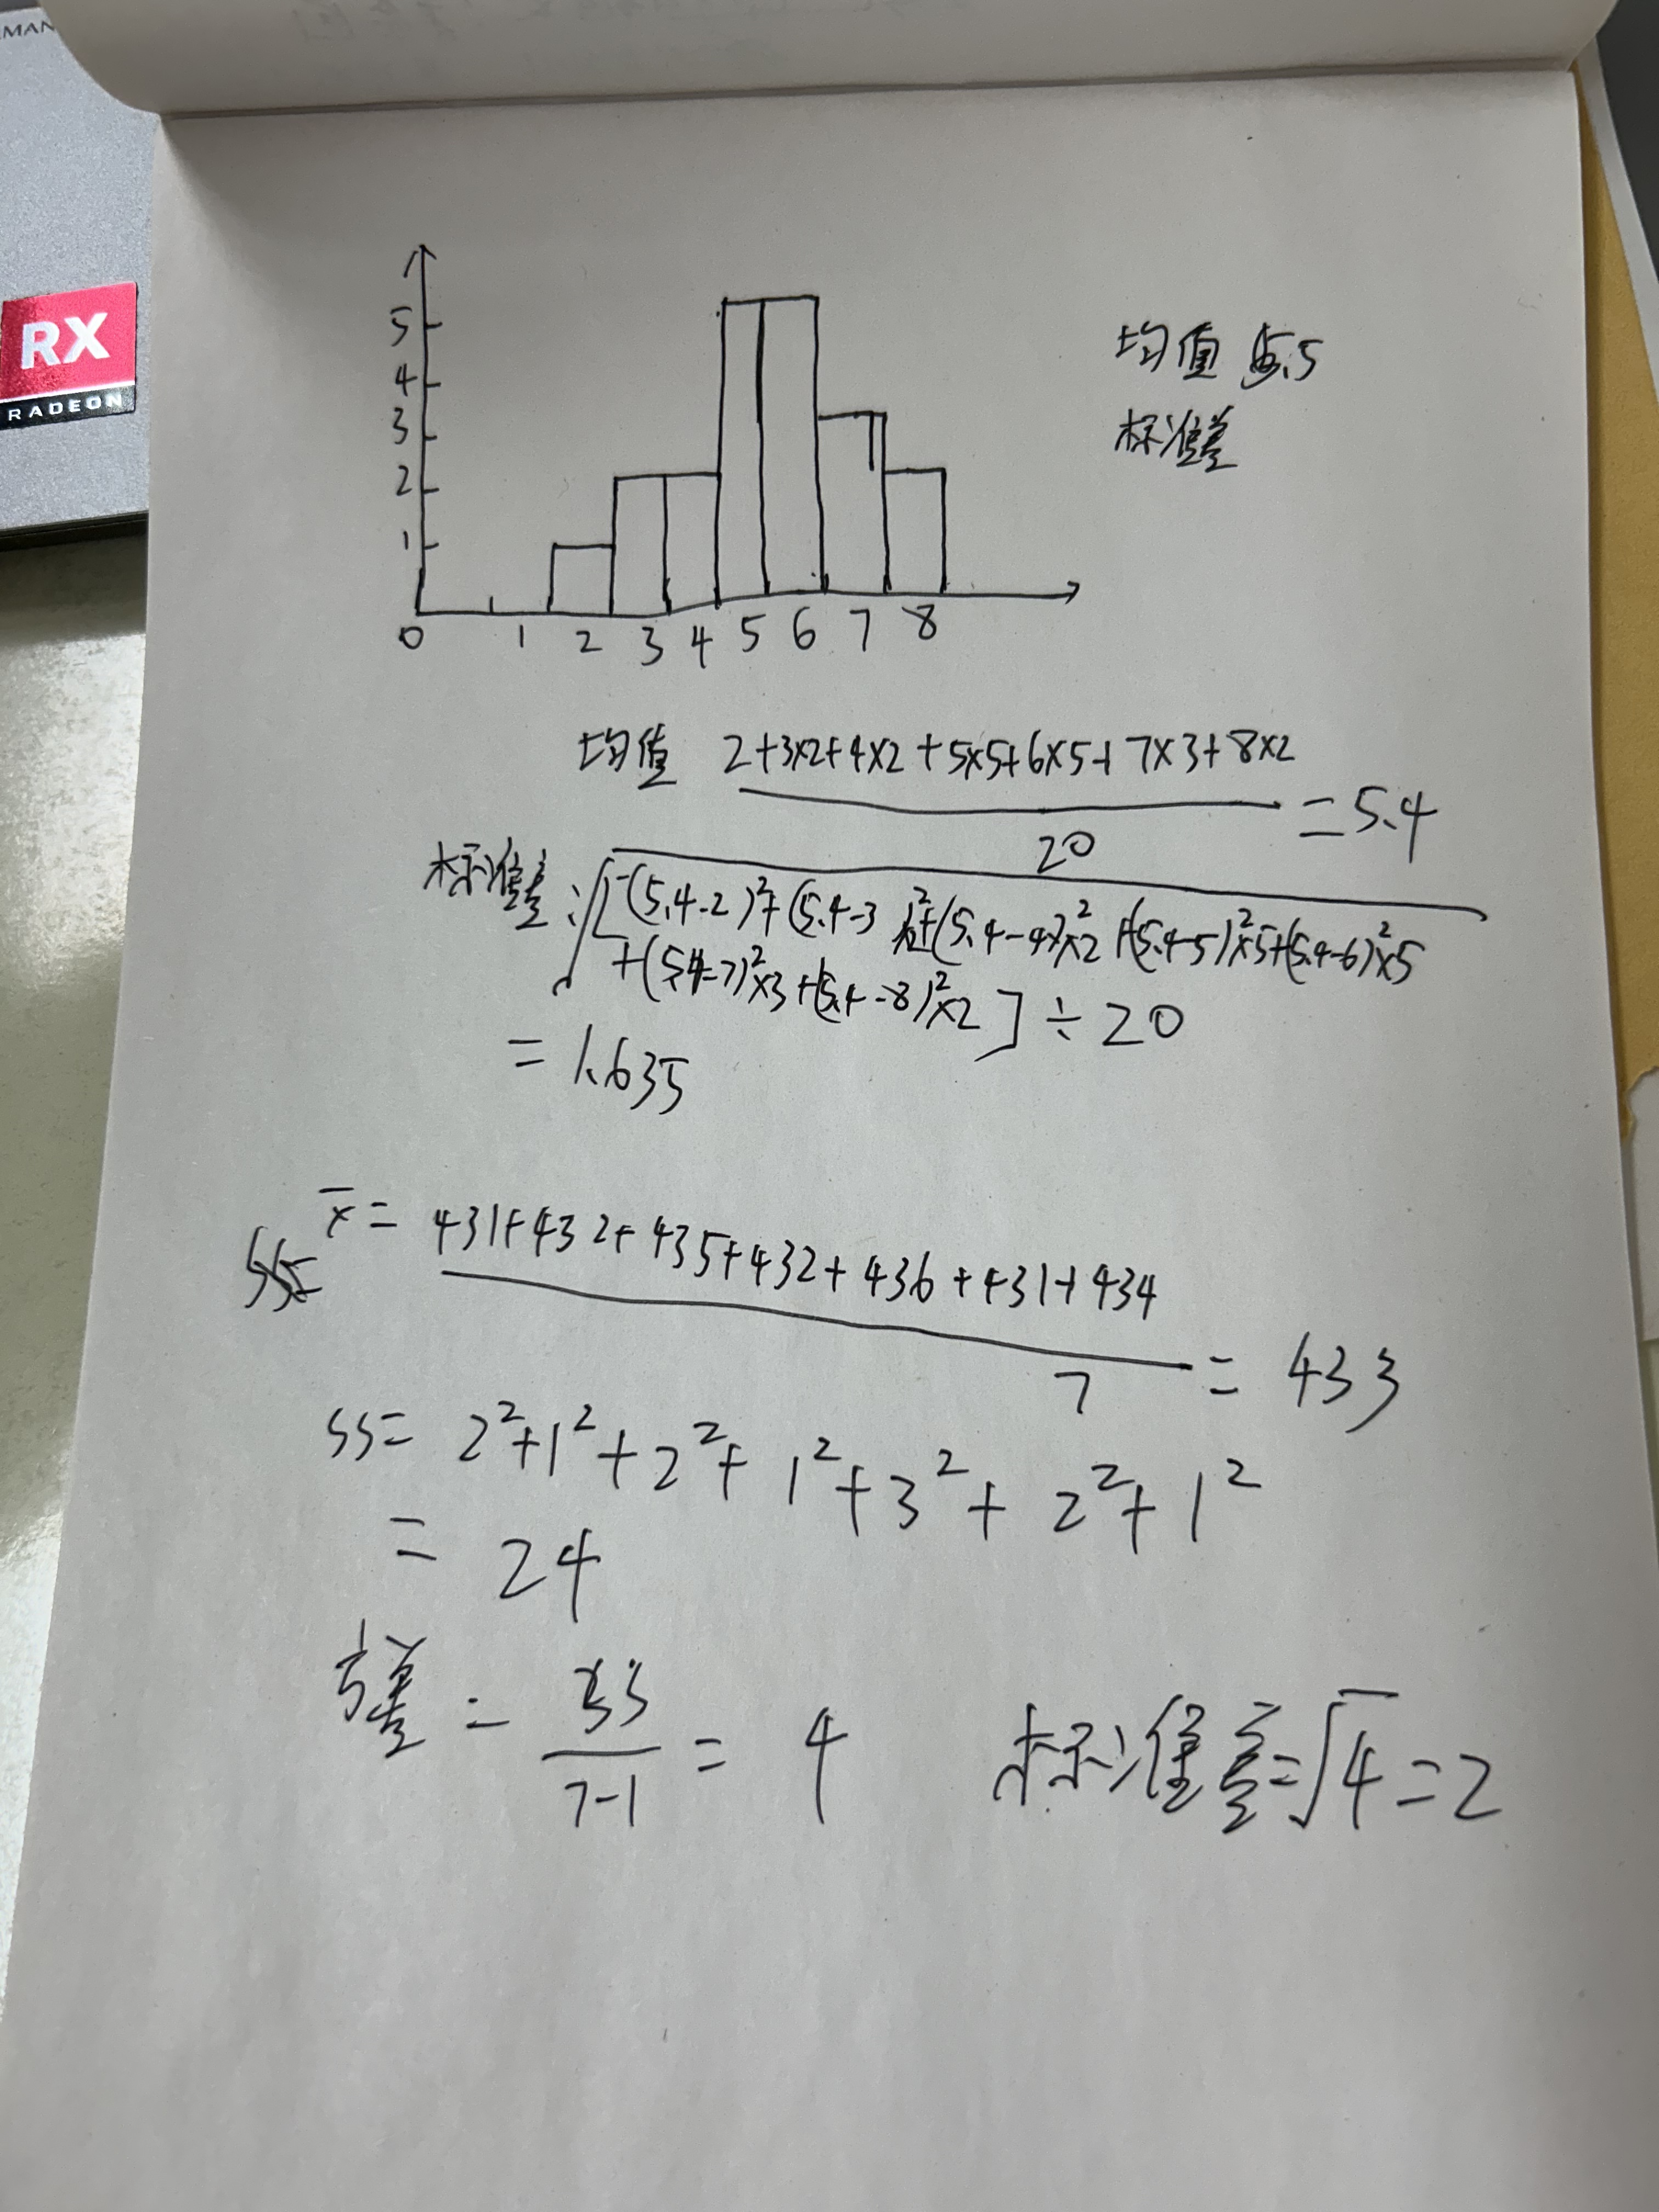 MAN
RX
RADEON
5
4
3
2
1
0 1 2 3 4 5 6 7 8
均值 5.5
标准差
均值 2+3×2+4×2+5×5+6×5+7×3+8×2
20
=5.4
标准差:√[(5.4-2)²+(5.4-3)²×2+(5.4-4)²×2+(5.4-5)²×5+(5.4-6)²×5
+(5.4-7)²×3+(5.4-8)²×2]÷20
=1.635
x̄= 431+432+435+432+436+431+434
7
= 433
SS= 2²+1²+2²+1²+3²+2²+1²
= 24
方差 = SS/7-1 = 4 标准差=√4=2